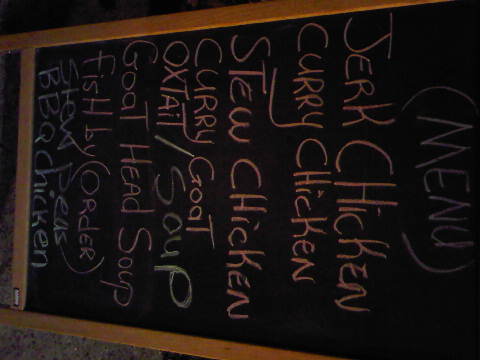 (MENU)
JERK CHICKEN
CURRY CHICKEN
STEW CHICKEN
CURRY GOAT
OXTAIL/SOUP
GOAT HEAD SOUP
FISH (BY ORDER)
STEW PEAS
BBQ CHICKEN